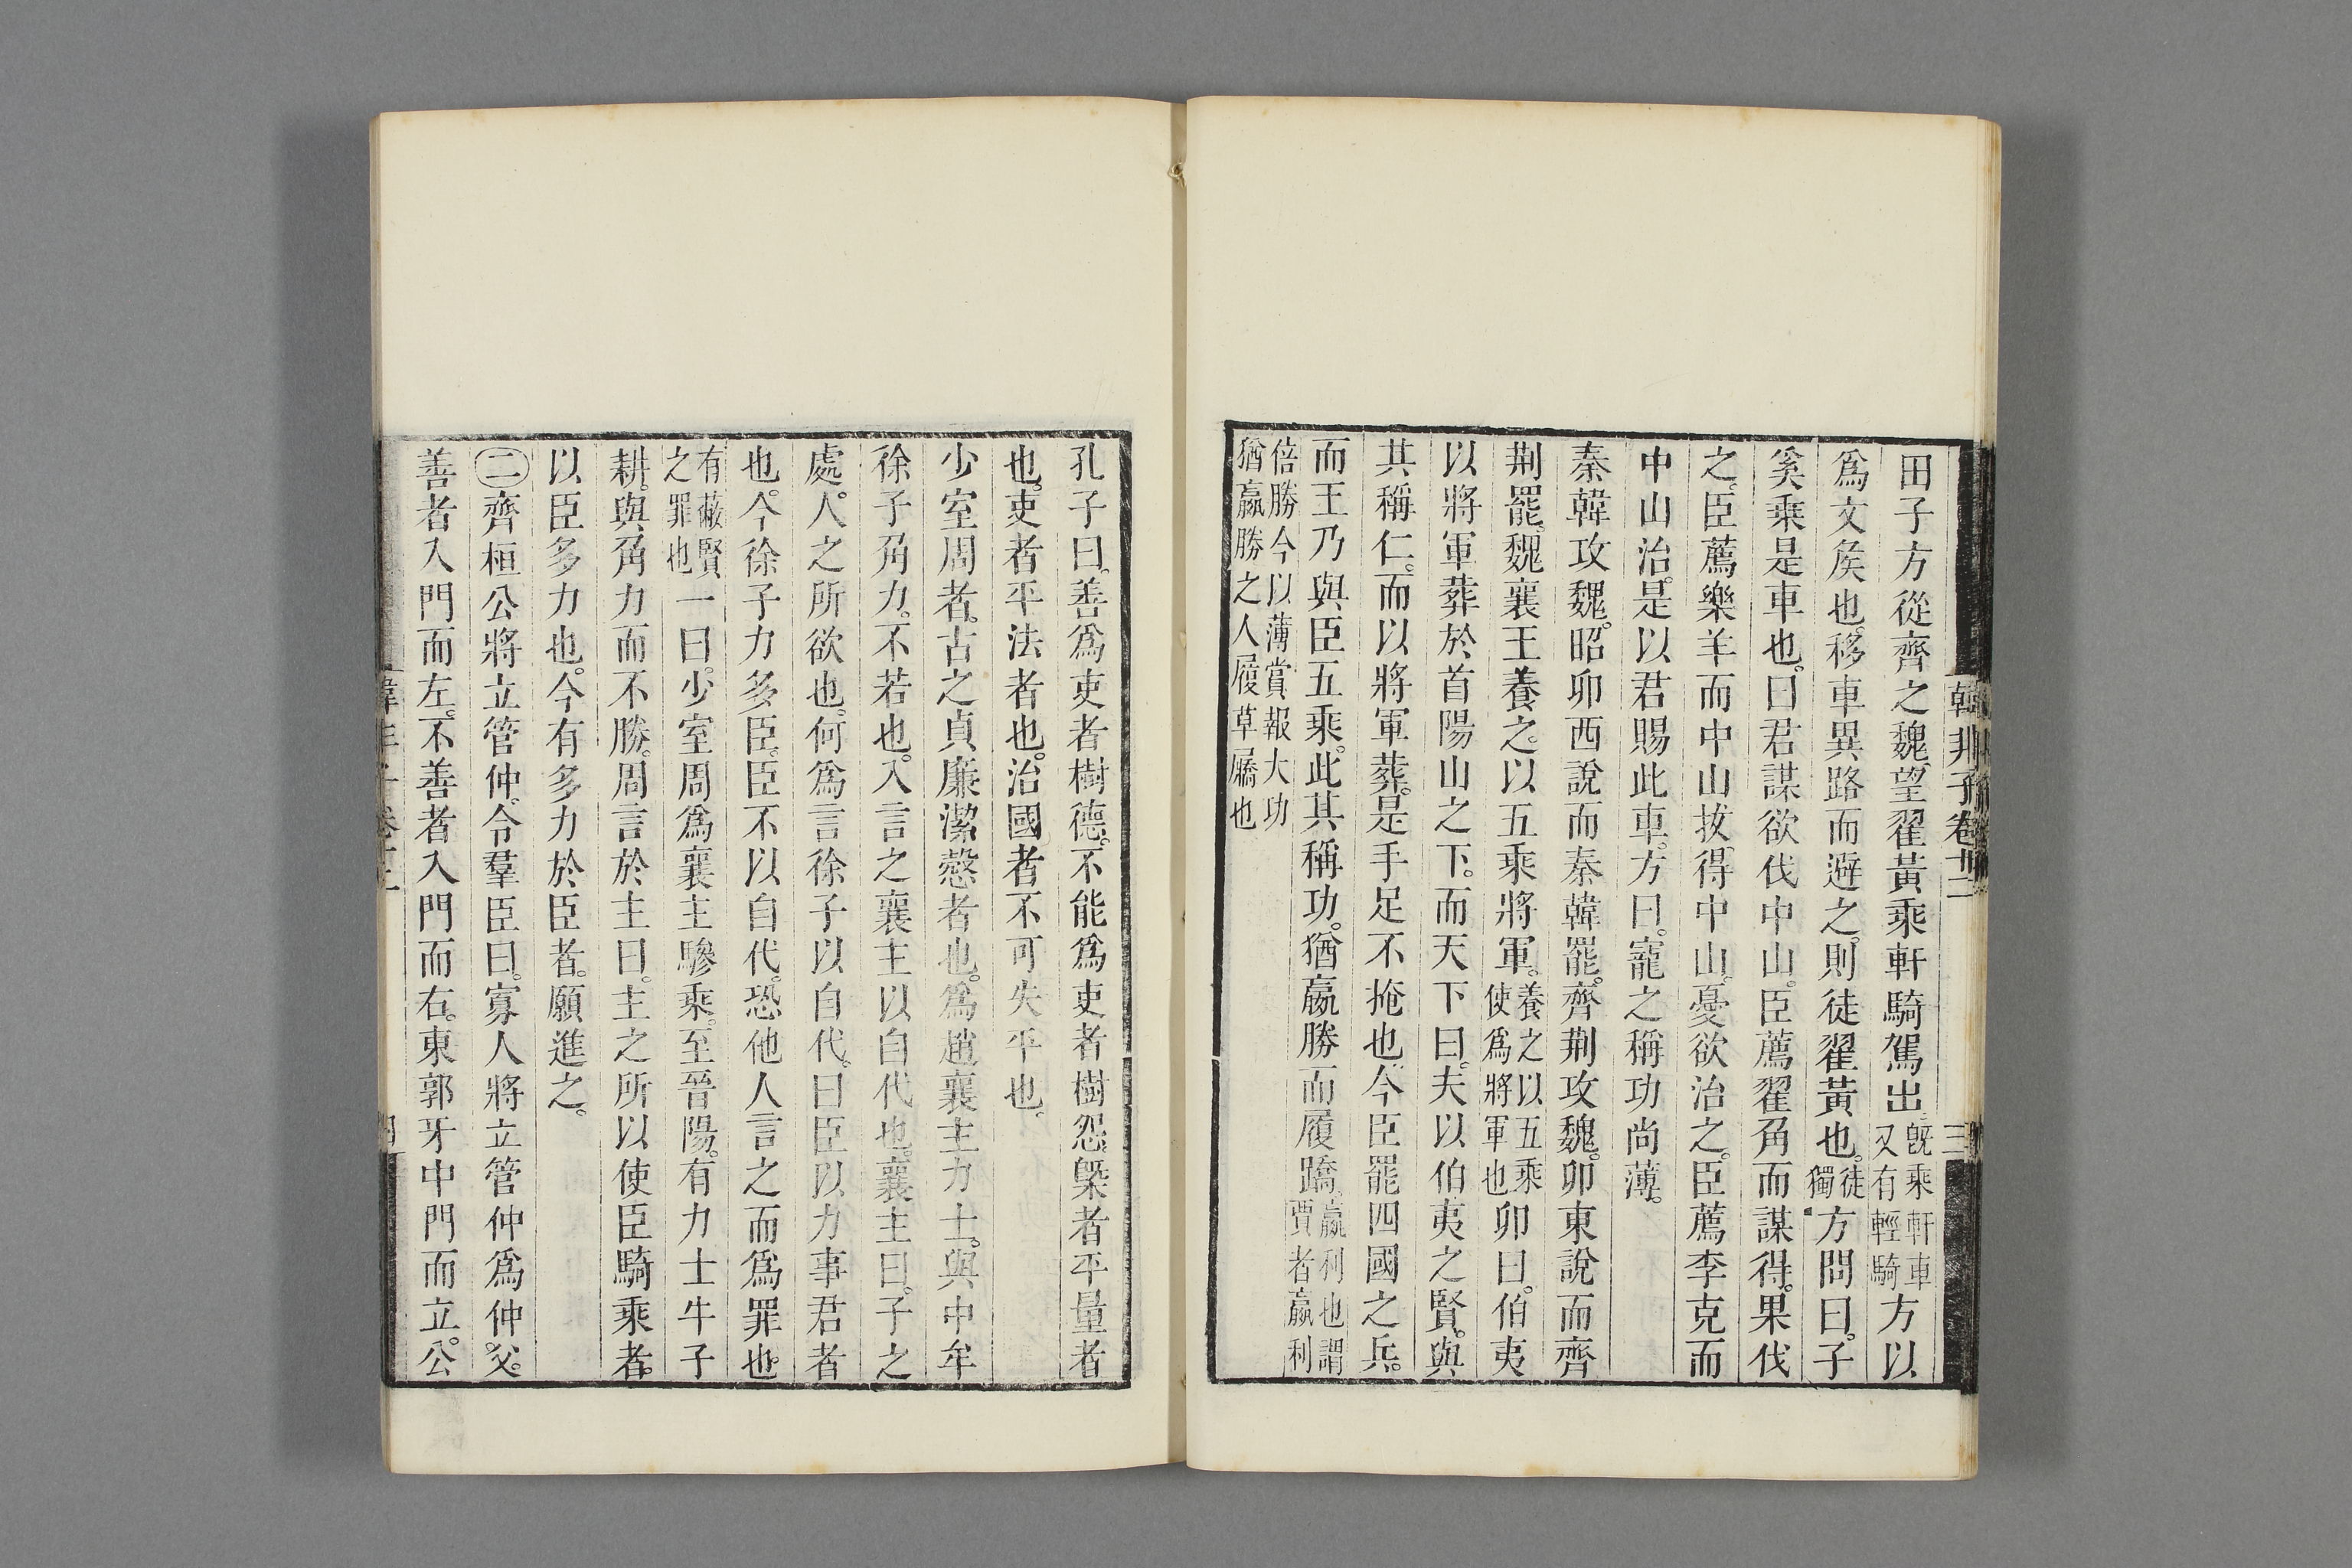 韓非子卷十二
三
田子方從齊之魏望翟黃乘軒騎駕出。旣乘軒車又有輕騎方以
爲文矦也。移車異路而避之。則徒翟黃也。徒獨方問曰。子
奚乘是車也。曰君謀欲伐中山。臣薦翟角而謀得。果伐
之。臣薦樂羊而中山拔。得中山。憂欲治之。臣薦李克而
中山治。是以君賜此車。方曰。寵之稱功尚薄。
秦韓攻魏。昭卯西說而秦韓罷。齊荆攻魏。卯東說而齊
荆罷。魏襄王養之。以五乘將軍。養之以五乘使爲將軍也卯曰。伯夷
以將軍葬於首陽山之下。而天下曰。夫以伯夷之賢。與
其稱仁。而以將軍葬。是手足不掩也。今臣罷四國之兵。
而王乃與臣五乘。此其稱功。猶嬴勝而履蹻。嬴利也謂賈者嬴利
倍勝今以薄賞報大功猶嬴勝之人履草屩也
孔子曰。善爲吏者樹德。不能爲吏者樹怨。槩者平量者
也。吏者平法者也。治國者不可失平也。
少室周者。古之貞廉潔慤者也。爲趙襄主力士。與中牟
徐子角力。不若也。入言之襄主以自代也。襄主曰。子之
處。人之所欲也。何爲言徐子以自代。曰臣以力事君者
也。今徐子力多臣。臣不以自代。恐他人言之而爲罪也。
有蔽賢之罪也一曰。少室周爲襄主驂乘。至晉陽。有力士牛子
耕。與角力而不勝。周言於主曰。主之所以使臣騎乘者。
以臣多力也。今有多力於臣者。願進之。
㊁齊桓公將立管仲。令羣臣曰。寡人將立管仲爲仲父。
善者入門而左。不善者入門而右。東郭牙中門而立。公